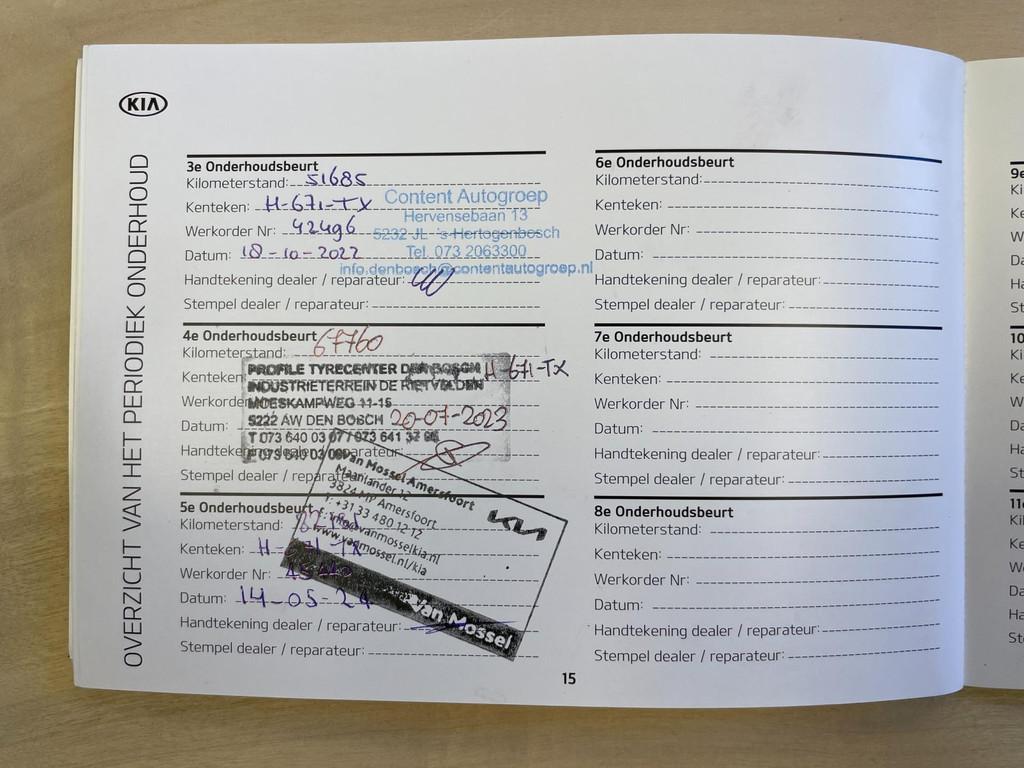 KIA
OVERZICHT VAN HET PERIODIEK ONDERHOUD
3e Onderhoudsbeurt
Kilometerstand: 51685
Kenteken: H-671-TX
Werkorder Nr: 42496
Datum: 18-10-2022
Handtekening dealer / reparateur:
Stempel dealer / reparateur:
Content Autogroep
Hervensebaan 13
5232 JL 's-Hertogenbosch
Tel. 073 2063300
info.denbosch@contentautogroep.nl
4e Onderhoudsbeurt
Kilometerstand: 67760
Kenteken: H-671-TX
Werkorder
Datum: 20-07-2023
Handtekening dealer / reparateur:
Stempel dealer / reparateur:
PROFILE TYRECENTER DEN BOSCH
INDUSTRIETERREIN DE RIETVELDEN
MOESKAMPWEG 11-15
5222 AW DEN BOSCH
T 073 640 03 07 / 073 641
F 073
5e Onderhoudsbeurt
Kilometerstand:
Kenteken: H-671-TX
Werkorder Nr:
Datum: 14-05-24
Handtekening dealer / reparateur:
Stempel dealer / reparateur:
Van Mossel Amersfoort
Maanlander 12
3824 MP Amersfoort
T: +31 33 480 12 12
E: info@vanmosselkia.nl
www.vanmossel.nl/kia
KIA
Van Mossel
6e Onderhoudsbeurt
Kilometerstand:
Kenteken:
Werkorder Nr:
Datum:
Handtekening dealer / reparateur:
Stempel dealer / reparateur:
7e Onderhoudsbeurt
Kilometerstand:
Kenteken:
Werkorder Nr:
Datum:
Handtekening dealer / reparateur:
Stempel dealer / reparateur:
8e Onderhoudsbeurt
Kilometerstand:
Kenteken:
Werkorder Nr:
Datum:
Handtekening dealer / reparateur:
Stempel dealer / reparateur:
15